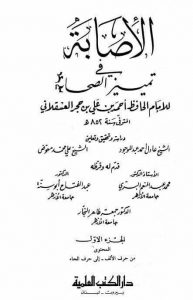 الإصابة
في
تمييز الصحابة
للإمام الحافظ أحمد بن علي بن حجر العسقلاني
المتوفى سنة ٨٥٢ هـ
دراسة وتحقيق وتعليق
الشيخ عادل أحمد عبد الموجود
الشيخ علي محمد معوض
قدم له وقرظه
الأستاذ الدكتور
محمد عبد المنعم البري
جامعة الأزهر
الدكتور
عبد الفتاح أبو سنة
جامعة الأزهر
الدكتور جمعة طاهر النجار
جامعة الأزهر
الجزء الأول
المحتوى
من حرف الألف - إلى حرف الحاء
دار الكتب العلمية